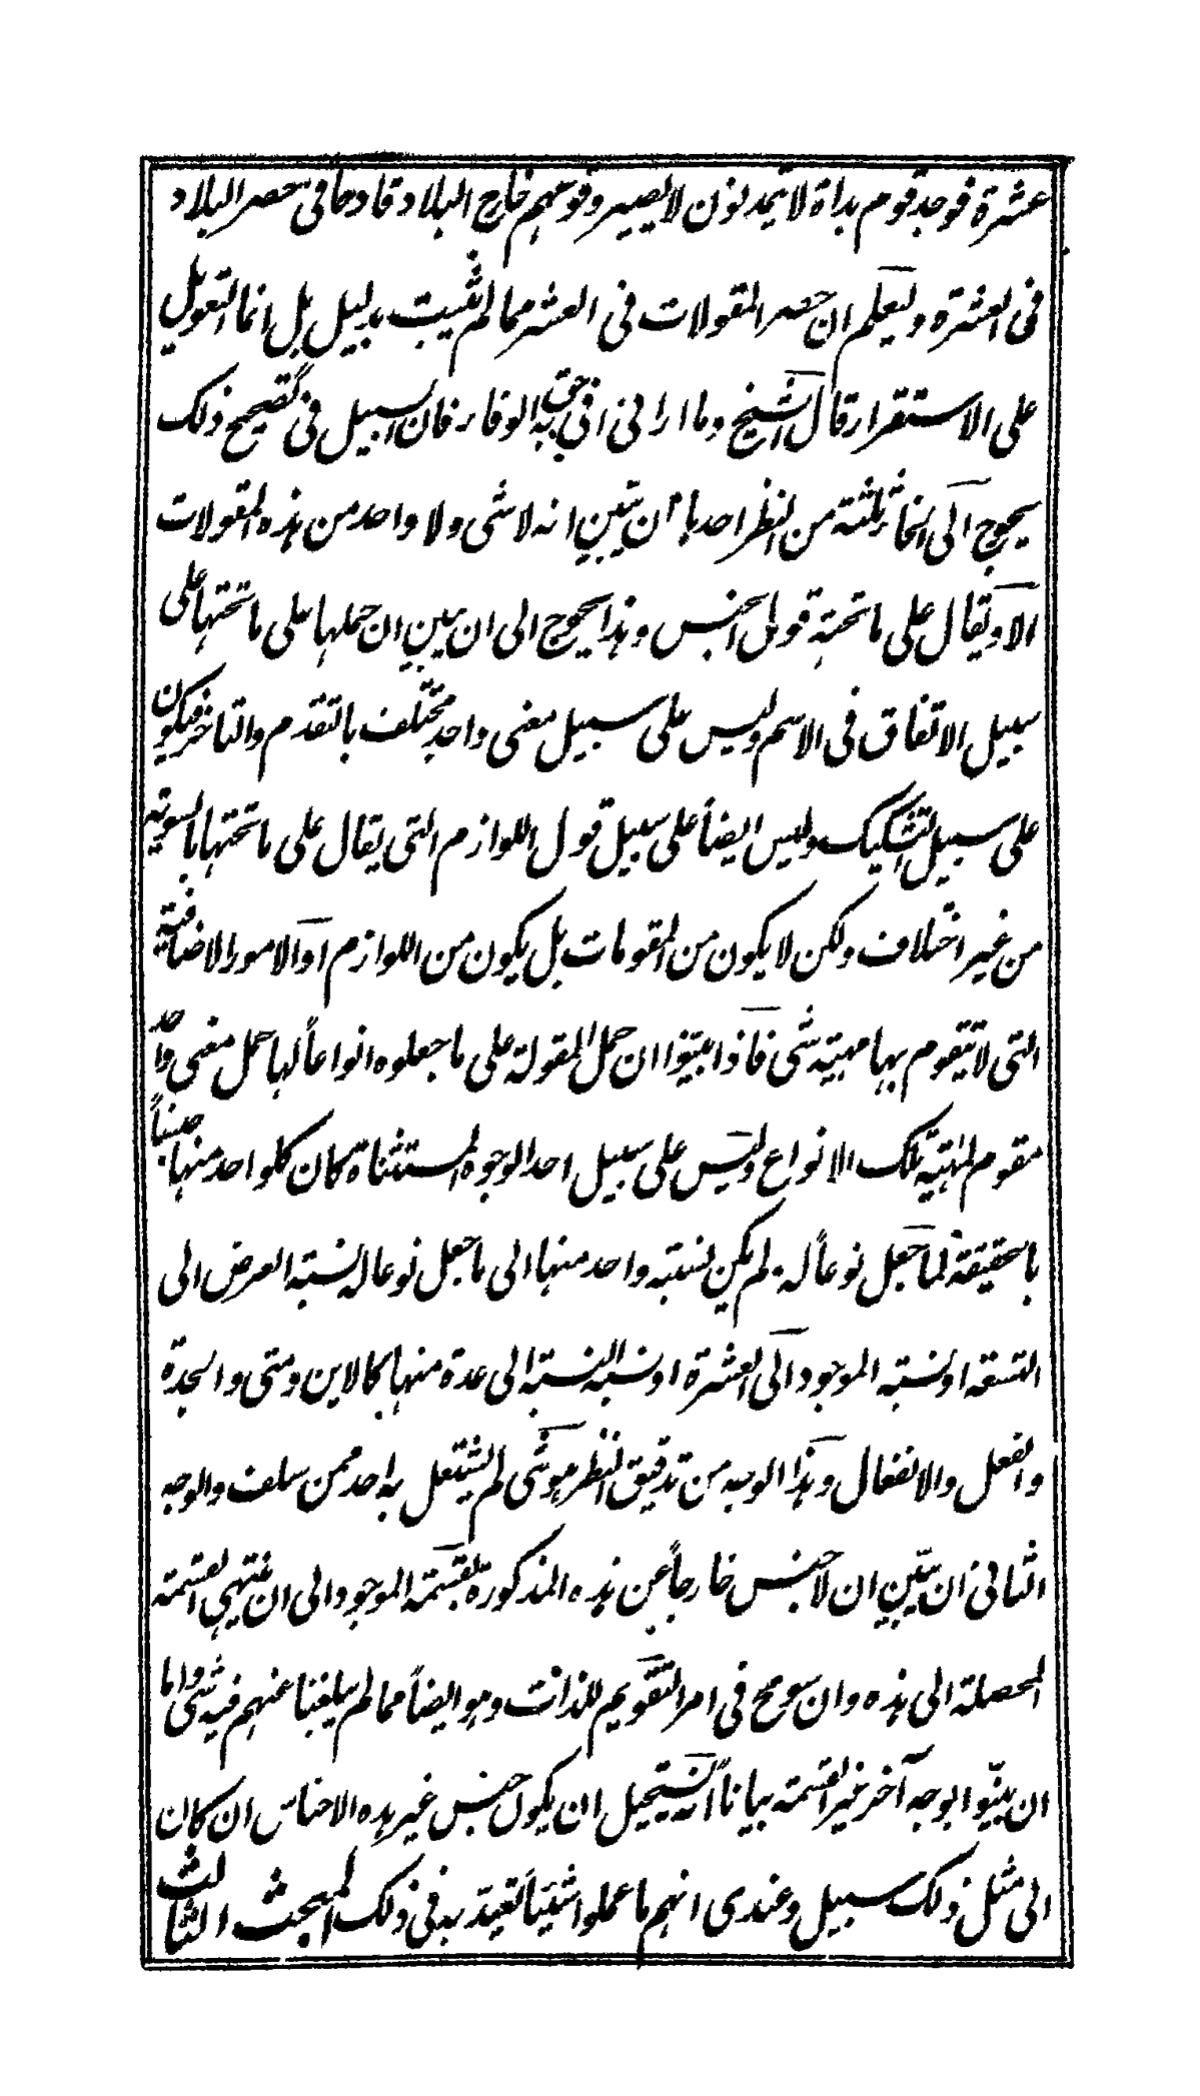 عشرة فوجد قوم بداة لا يتمدنون لا يصير وقوعهم خارج البلاد قادحا فى حصر البلاد
فى العشرة وليعلم ان حصر المقولات فى العشر مما لم يثبت بدليل بل انما التعويل
على الاستقرار قال الشيخ وما ارانى افى به حق الوفاء فان السبيل فى تصحيح ذلك
يحوج الى انحاء ثلثة من النظر احدها ان يتبين انه لا شى ولا واحد من هذه المقولات
الا ويقال على ما تحته قول الجنس وهذا يحوج الى ان يبين ان حملها على ما تحتها على
سبيل الاتفاق فى الاسم وليس على سبيل معنى واحد مختلف بالتقدم والتاخر فيكون
على سبيل التشكيك وليس ايضاً على سبيل قول اللوازم التى يقال على ما تحتها بالسوية
من غير اختلاف ولكن لا يكون من المقومات بل يكون من اللوازم او الامور الاضافية
التى لا تتقوم بها مهية شى فاذا بينوا ان حمل المقولة على ما جعلوه انواعاً لها حمل معنى واحد
مقوم لمهية تلك الانواع وليس على سبيل احد الوجوه المستثناة كان كلواحد منها جنساً
بالحقيقة لما جعل نوعاً له ولم يكن نسبة واحد منها الى ما جعل نوعا له نسبة العرض الى
التسعة او نسبة الموجود الى العشرة او نسبة النسبة الى عدة منها كالاين ومتى والجدة
والفعل والانفعال وهذا الوجه من تدقيق النظر هو شى لم يشتغل به احد ممن سلف والوجه
الثانى ان يبين ان لا جنس خارجاً عن هذه المذكورة بقسمة الموجود الى ان ينتهى القسمة
المحصلة الى هذه وان سومح فى امر التقويم للذات وهو ايضاً مما لم يبلغنا عنهم فيه شى واما
ان بينوا بوجه آخر غير القسمة بياناً انه يستحيل ان يكون جنس غير هذه الاجناس ان كان
الى مثل ذلك سبيل وعندى انهم ما عملوا شيئاً يعتد به فى ذلك المبحث الثالث